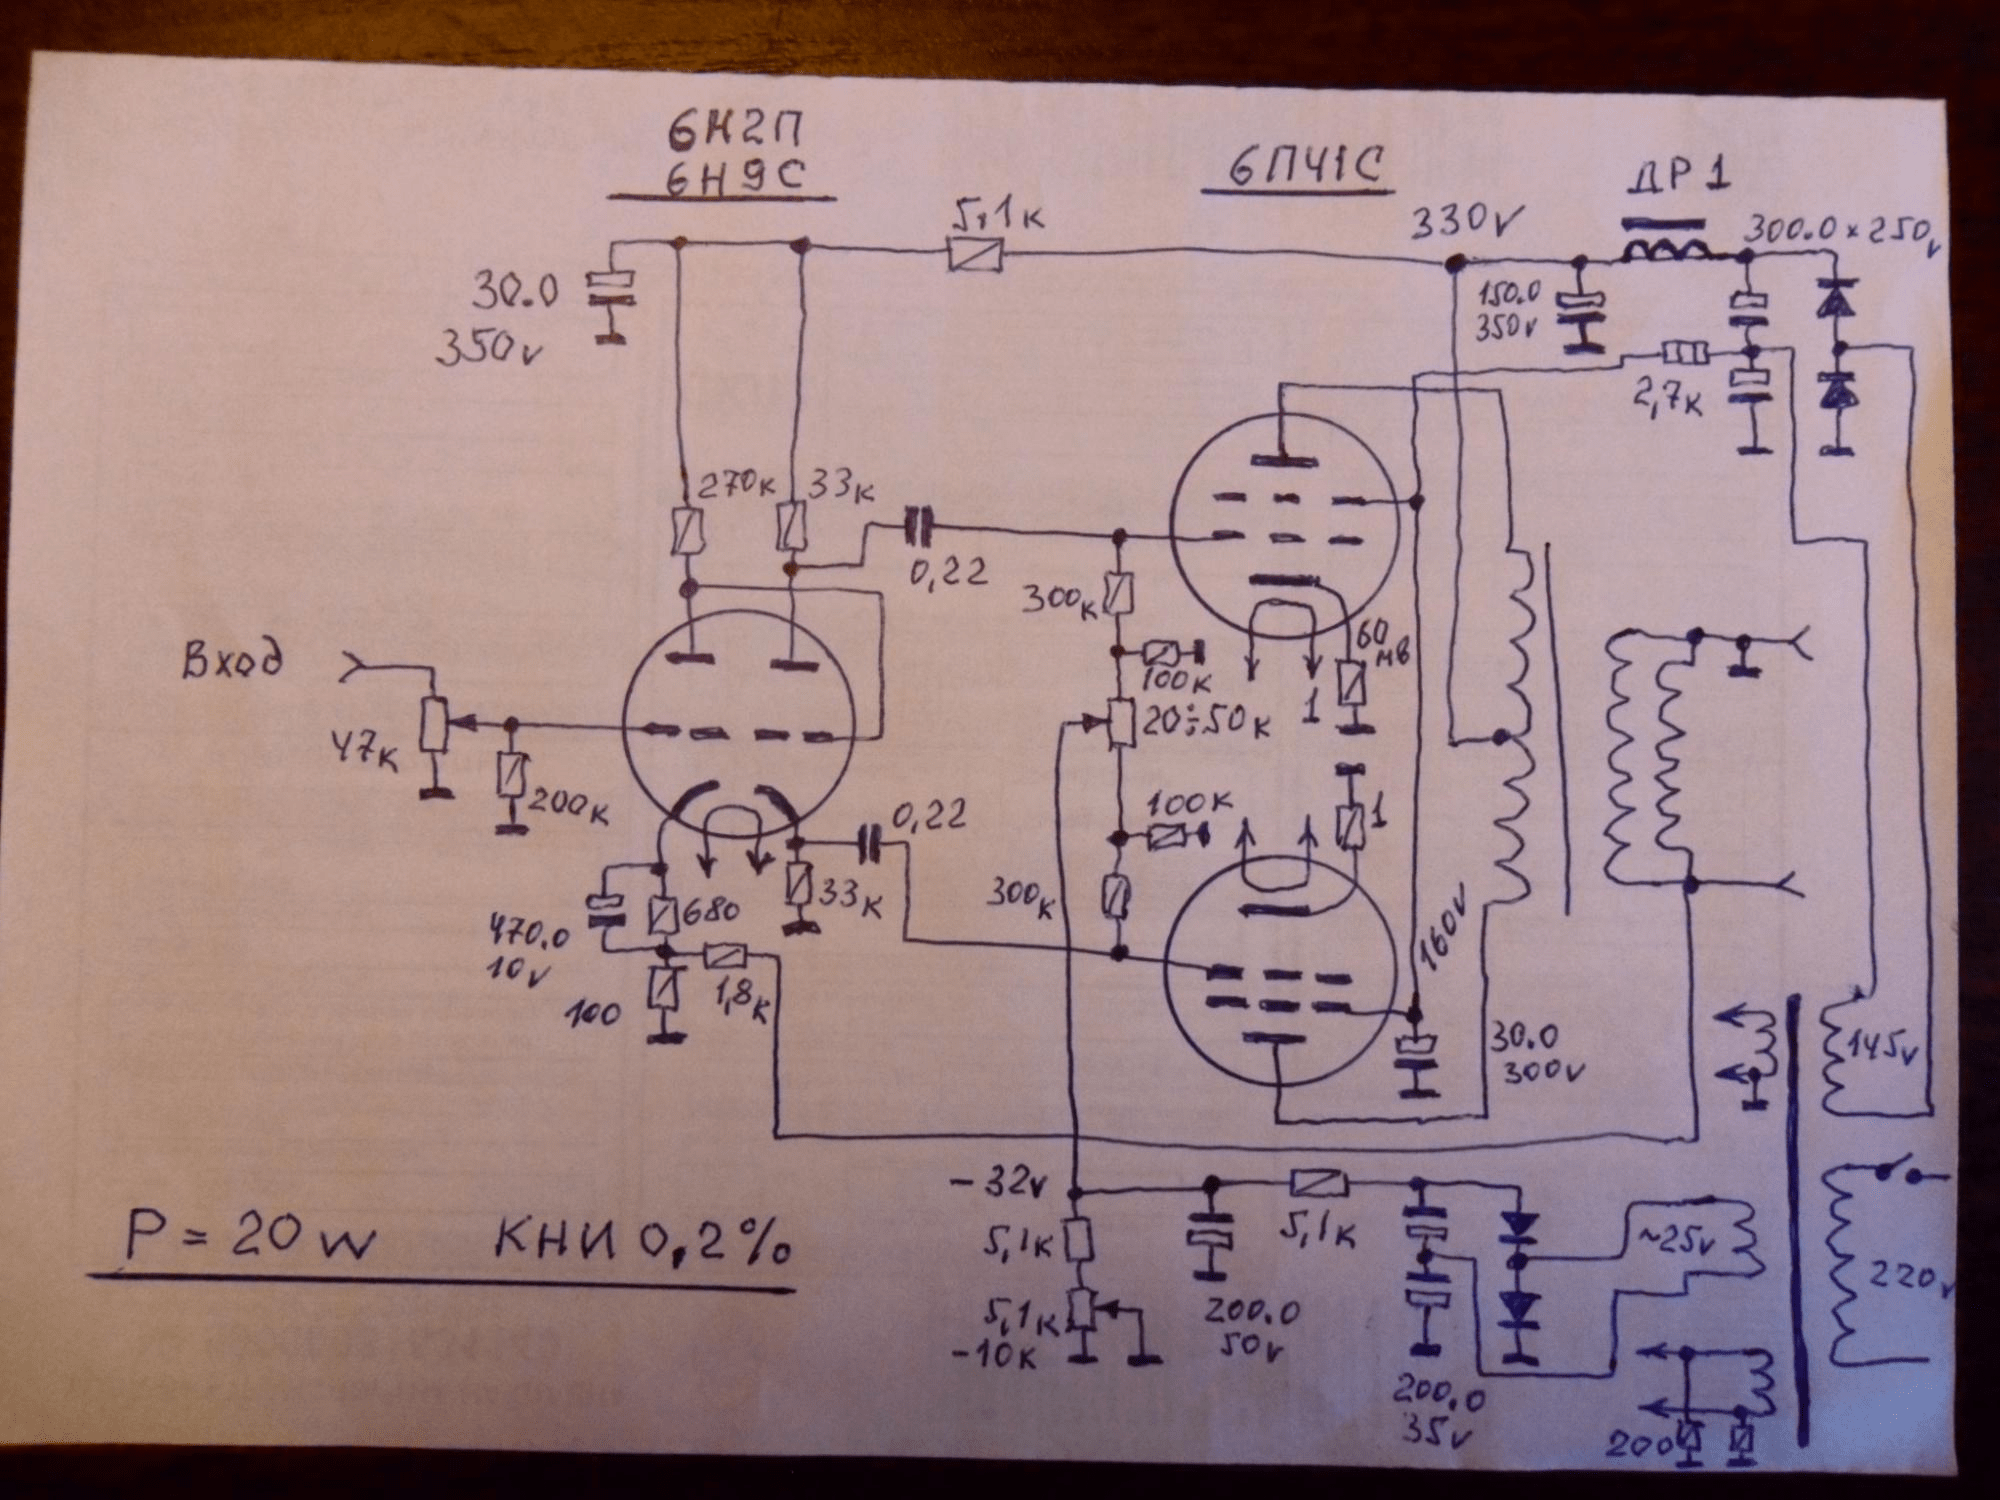 6Н2П
6Н9С
6П41С
ДР1
5,1к
330v
300.0 × 250v
30.0
350v
150.0
350v
2,7к
270к
33к
0,22
300к
60
мв
100к
1
20÷50к
Вход
47к
200к
0,22
100к
1
33к
300к
680
470.0
10v
100
1,8к
160v
30.0
300v
145v
-32v
5,1к
5,1к
5,1к
-10к
200.0
50v
~25v
220v
200.0
35v
200
P = 20w КНИ 0,2%